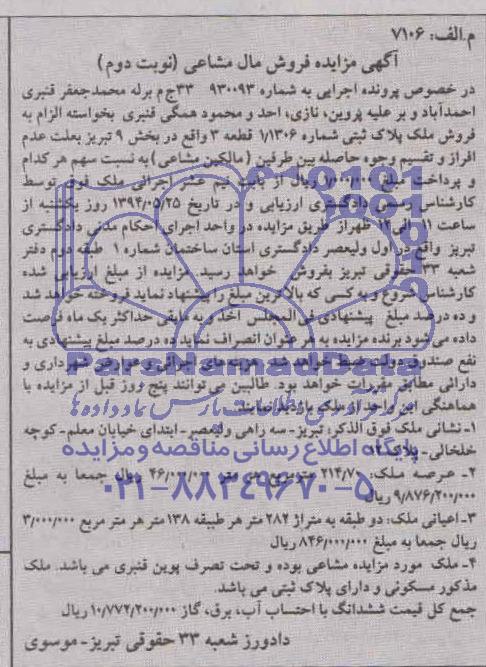 م.الف: ۷۱۰۶
آگهی مزایده فروش مال مشاعی (نوبت دوم)
در خصوص پرونده اجرایی به شماره ۹۳۰۰۹۳ ۳۳ج م برله محمدجعفر قنبری
احمدآباد و بر علیه پروین، نازی، احد و محمود همگی قنبری بخواسته الزام به
فروش ملک پلاک ثبتی شماره ۱/۱۳۰۶ قطعه ۳ واقع در بخش ۹ تبریز بعلت عدم
افراز و تقسیم وجوه حاصله بین طرفین (مالکین مشاعی) به نسبت سهم هر کدام
و پرداخت مبلغ ریال از بابت نیم عشر اجرائی ملک فوق توسط
کارشناس رسمی دادگستری ارزیابی و در تاریخ ۱۳۹۴/۰۵/۲۵ روز یکشنبه از
ساعت ۱۱ الی ۱۲ ظهر از طریق مزایده در واحد اجرای احکام مدنی دادگستری
تبریز واقع در اول ولیعصر دادگستری استان ساختمان شماره ۱ طبقه دوم دفتر
شعبه ۳۳ حقوقی تبریز بفروش خواهد رسید. مزایده از مبلغ ارزیابی شده
کارشناس شروع و به کسی که بالاترین مبلغ را پیشنهاد نماید فروخته خواهد شد
و ده درصد مبلغ پیشنهادی فی‌المجلس اخذ و به مابقی حداکثر یک ماه فرصت
داده می شود برنده مزایده به هر عنوان انصراف نماید ده درصد مبلغ پیشنهادی به
نفع صندوق دولت ضبط خواهد شد. هزینه های اجرائی و عوارض شهرداری و
دارائی مطابق مقررات خواهد بود. طالبین می توانند پنج روز قبل از مزایده با
هماهنگی این واحد از ملک بازدید نمایند.
۱- نشانی ملک فوق الذکر: تبریز- سه راهی ولیعصر- ابتدای خیابان معلم- کوچه
خلخالی- پلاک
۲- عرصه ملک: ۲۱۴/۷۰ مترمربع هر متر ۴۶/۰۰۰/۰۰۰ ریال جمعا به مبلغ
۹/۸۷۶/۲۰۰/۰۰۰ ریال
۳- اعیانی ملک: دو طبقه به متراژ ۲۸۲ متر هر طبقه ۱۳۸ متر هر متر مربع ۳/۰۰۰/۰۰۰
ریال جمعا به مبلغ ۸۴۶/۰۰۰/۰۰۰ ریال
۴- ملک مورد مزایده مشاعی بوده و تحت تصرف پوین قنبری می باشد. ملک
مذکور مسکونی و دارای پلاک ثبتی می باشد.
جمع کل قیمت ششدانگ با احتساب آب، برق، گاز ۱۰/۷۷۲/۲۰۰/۰۰۰ ریال
دادورز شعبه ۳۳ حقوقی تبریز- موسوی
ParsNamadData
پایگاه اطلاع رسانی مناقصه و مزایده
۰۲۱-۸۸۳۴۹۶۷۰-۵